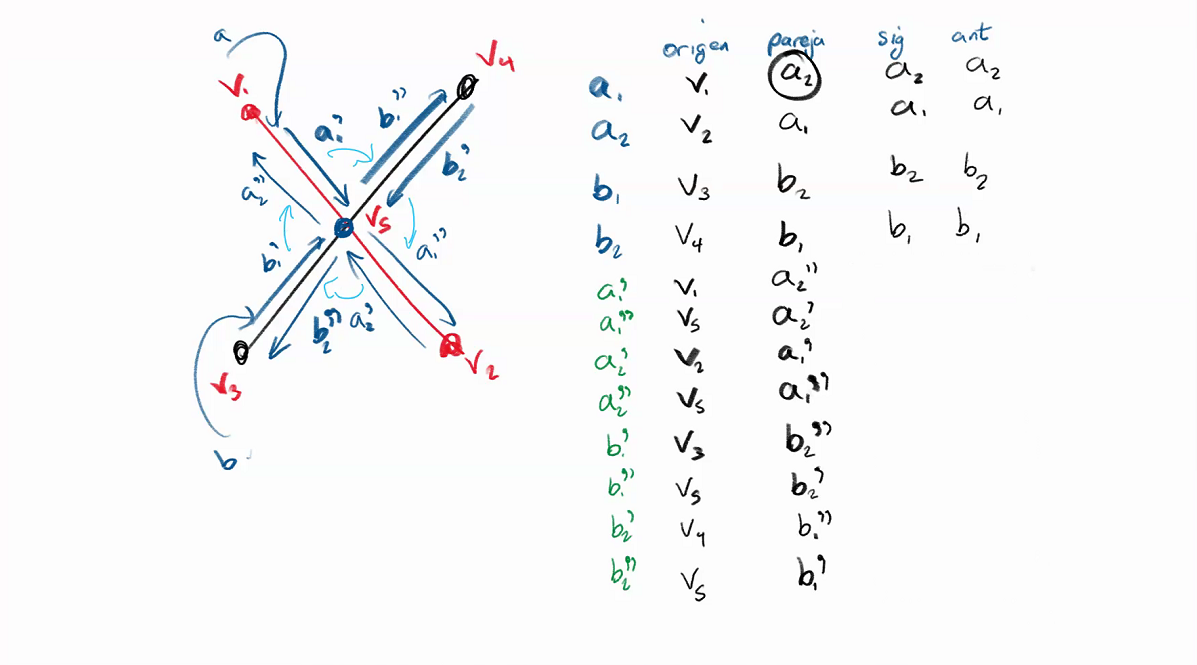 a
v₁
v₄
a₁'
b₁''
a₂''
b₂'
v₅
b₁'
a₁''
b₂''
a₂'
v₃
v₂
b
origen pareja sig ant
a₁ v₁ a₂ a₂ a₂
a₂ v₂ a₁ a₁ a₁
b₁ v₃ b₂ b₂ b₂
b₂ v₄ b₁ b₁ b₁
a₁' v₁ a₂''
a₁'' v₅ a₂'
a₂' v₂ a₁''
a₂'' v₅ a₁'
b₁' v₃ b₂''
b₁'' v₅ b₂'
b₂' v₄ b₁''
b₂'' v₅ b₁'